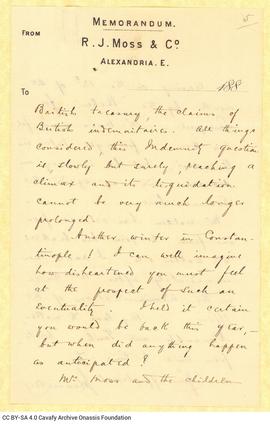 5
MEMORANDUM.
FROM
R. J. MOSS & Co.
ALEXANDRIA. E.
188
TO
British treasury, the claims of
British indemnitaires. All things
considered this Indemnity question
is, slowly but surely, reaching a
climax and its liquidation
cannot be very much longer
prolonged.
Another winter in Constan-
tinople! I can well imagine
how disheartened you must feel
at the prospect of such an
Eventuality. I held it certain
you would be back this year, —
but when did anything happen
as anticipated?
Mrs Moss and the children
CC BY-SA 4.0 Cavafy Archive Onassis Foundation